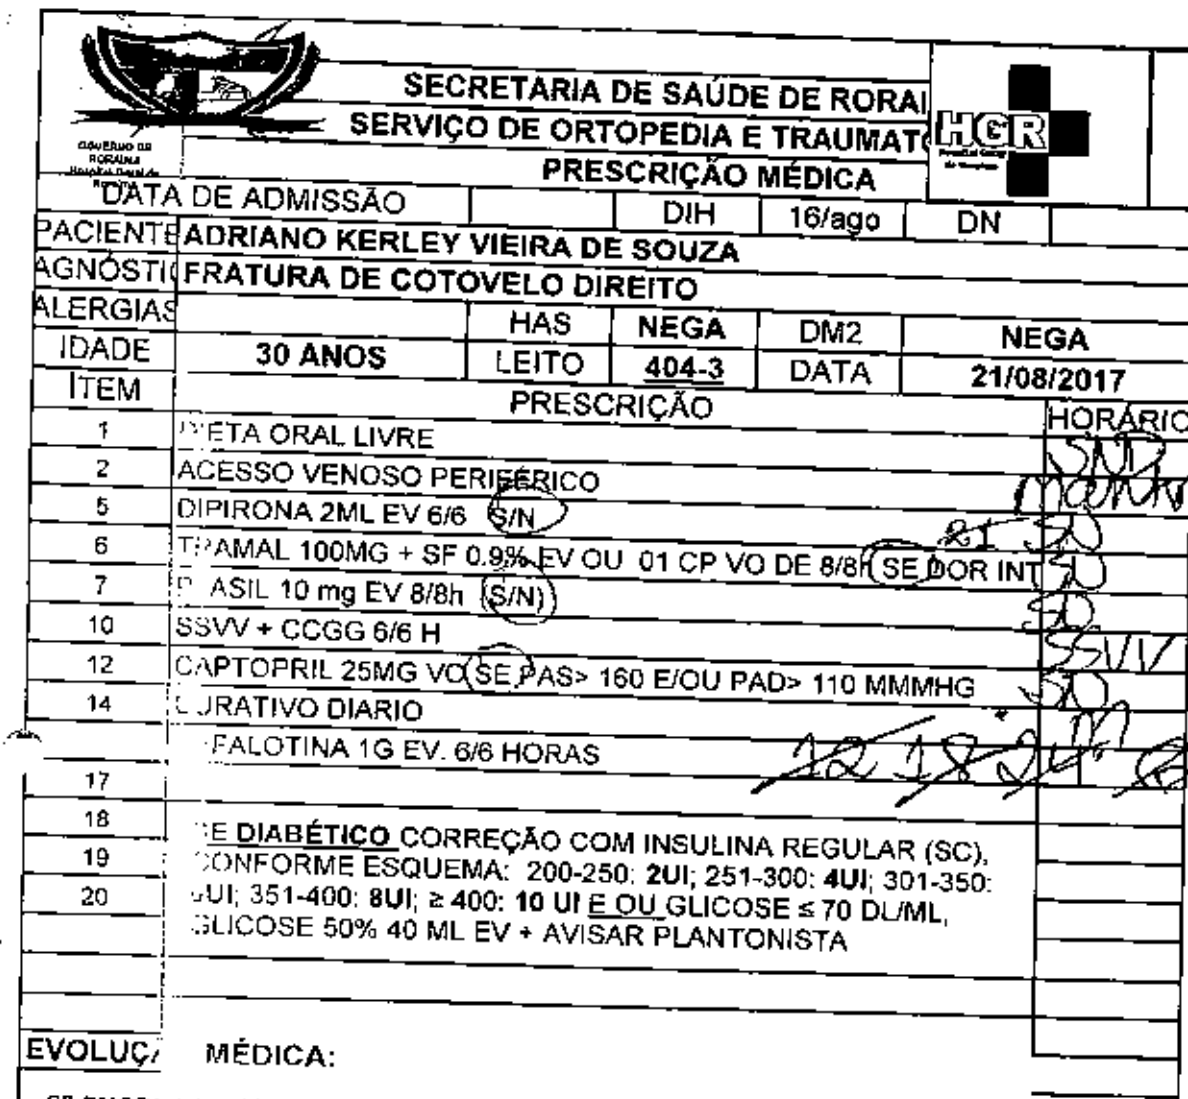 GOVERNO DE
RORAIMA
Hospital Geral de
SECRETARIA DE SAÚDE DE RORAI
SERVIÇO DE ORTOPEDIA E TRAUMAT
PRESCRIÇÃO MÉDICA
HGR
DATA DE ADMISSÃO DIH 16/ago DN
PACIENTE ADRIANO KERLEY VIEIRA DE SOUZA
AGNÓSTI FRATURA DE COTOVELO DIREITO
ALERGIAS HAS NEGA DM2 NEGA
IDADE 30 ANOS LEITO 404-3 DATA 21/08/2017
ITEM PRESCRIÇÃO HORÁRIO
1 DIETA ORAL LIVRE SND
2 ACESSO VENOSO PERIFÉRICO
5 DIPIRONA 2ML EV 6/6 S/N 21
6 TRAMAL 100MG + SF 0.9% EV OU 01 CP VO DE 8/8H SE DOR INT
7 ASIL 10 mg EV 8/8h (S/N)
10 SSVV + CCGG 6/6 H SSVV
12 CAPTOPRIL 25MG VO SE PAS> 160 E/OU PAD> 110 MMMHG
14 URATIVO DIARIO
FALOTINA 1G EV. 6/6 HORAS 12 18 24
17
18 E DIABÉTICO CORREÇÃO COM INSULINA REGULAR (SC),
19 CONFORME ESQUEMA: 200-250: 2UI; 251-300: 4UI; 301-350:
20 UI; 351-400: 8UI; ≥ 400: 10 UI E OU GLICOSE ≤ 70 DL/ML,
GLICOSE 50% 40 ML EV + AVISAR PLANTONISTA
EVOLUÇ MÉDICA: